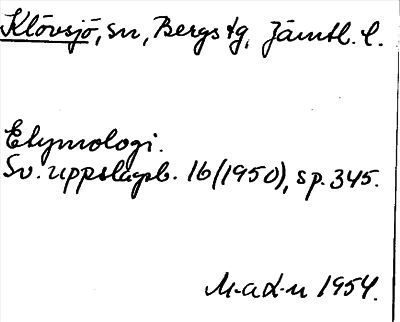 Klövsjö, sn, Bergs tg, Jämtl. l.
Etymologi.
Sv. uppslagsb. 16 (1950), sp. 345.
M-a d-n 1954.